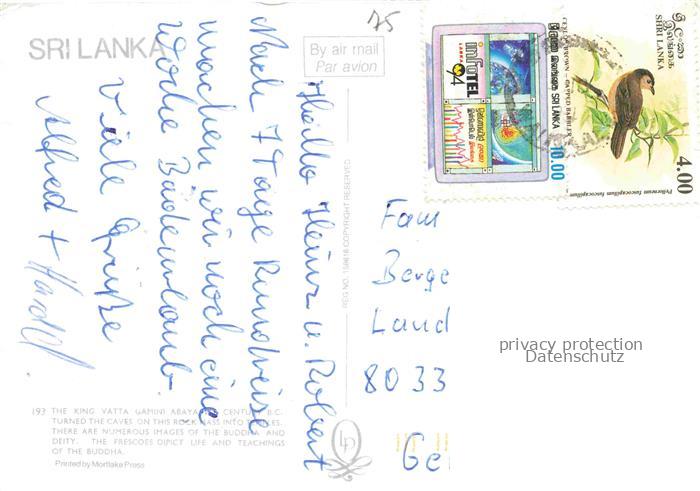 SRI LANKA
By air mail
Par avion
75
Hallo Heinz u. Robert
Nach 7 Tage Rundreise
machen wir noch eine
Woche Badeurlaub.
Viele Grüße
Alfred +
Fam
Berge
Land
8033
Ge
privacy protection
Datenschutz
REG NO. COPYRIGHT RESERVED
193 THE KING VATTA GAMINI ABAYA CENTU B.C.
TURNED THE CAVES ON THIS ROCK MASS INTO
THERE ARE NUMEROUS IMAGES OF THE BUDDHA AND
DEITY. THE FRESCOES DIPICT LIFE AND TEACHINGS
OF THE BUDDHA.
Printed by Mortlake Press
LP
infoTEL
LANKA
94
SRI LANKA
10.00
ශ්‍රී ලංකා
இலங்கை
SHRI LANKA
4.00
BROWN - CAPPED BABBLER
Pellorneum fuscocapillum fuscocapillum